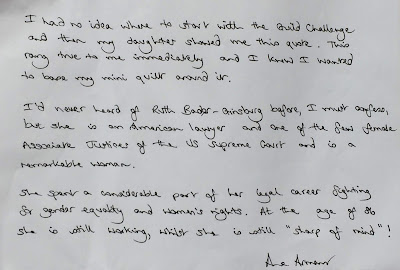 I had no idea where to start with the Guild Challenge
and then my daughter showed me this quote. This
rang true to me immediately and I knew I wanted
to base my mini quilt around it.
I'd never heard of Ruth Bader-Ginsburg before, I must confess,
but she is an American lawyer and one of the few female
Associate Justices of the US Supreme Court and is a
remarkable woman.
She spent a considerable part of her legal career fighting
for gender equality and women's rights. At the age of 86
she is still working, whilst she is still "sharp of mind"!